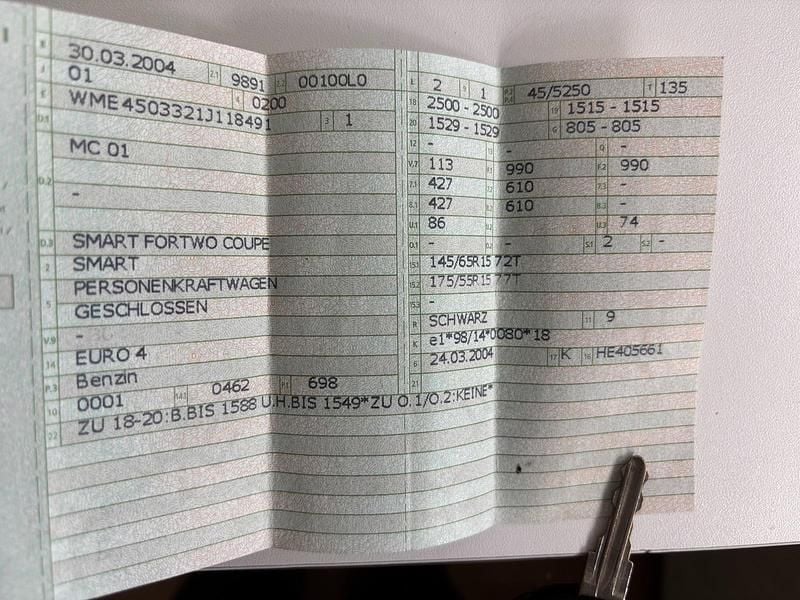 B 30.03.2004 2.1 9891 2.2 00100L0
J 01 4 0200
E WME4503321J118491 3 1
D.1 MC 01
D.2 -
D.3 SMART FORTWO COUPE
2 SMART
PERSONENKRAFTWAGEN
5 GESCHLOSSEN
V.9 -
14 EURO 4
P.3 Benzin
10 0001 14.1 0462 P.1 698
22 ZU 18-20:B.BIS 1588 U.H.BIS 1549*ZU O.1/O.2:KEINE*
L 2 9 1 P.2 P.4 45/5250 T 135
18 2500 - 2500 19 1515 - 1515
20 1529 - 1529 G 805 - 805
12 - - Q -
V.7 113 F.1 990 F.2 990
7.1 427 610 7.3 -
8.1 427 610 8.3 -
U.1 86 U.3 74
O.1 - O.2 - S.1 2 S.2 -
15.1 145/65R15 72T
15.2 175/55R15 77T
15.3 -
R SCHWARZ 11 9
K e1*98/14*0080*18
6 24.03.2004 17 K 16 HE405661
21